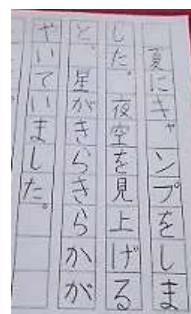 夏にキャンプをしま
した。夜空を見上げる
と、星がきらきらかが
やいていました。